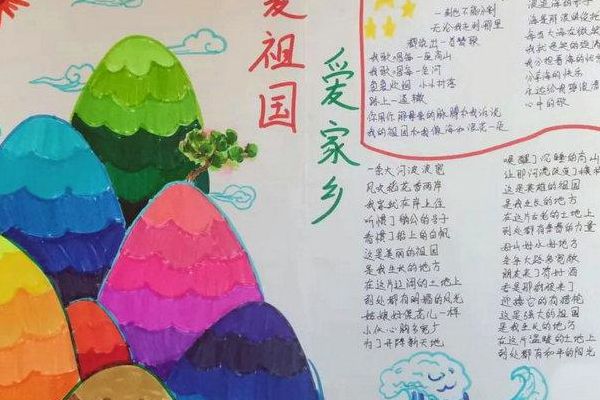 爱祖国
爱家乡
一刻也不能分割
无论我走到哪里
都流出一首赞歌
我歌唱每一座高山
我歌唱每一条河
袅袅炊烟 小小村落
路上一道辙
你用你那母亲的脉搏和我诉说
我的祖国和我像海和浪花一朵
海是那浪的依托
每当大海在微笑
我就是笑的旋涡
我分担着海的忧
分享海的快乐
永远给我碧浪清
心中的歌
一条大河波浪宽
风吹稻花香两岸
我家就在岸上住
听惯了艄公的号子
看惯了船上的白帆
这是美丽的祖国
是我生长的地方
在这片辽阔的土地上
到处都有明媚的风光
姑娘好像花儿一样
小伙心胸多宽广
为了开辟新天地
唤醒了沉睡的高山
让那河流改变了模样
这是英雄的祖国
是我生长的地方
在这片古老的土地上
到处都有青春的力量
好山好水好地方
条条大路都宽敞
朋友来了有好酒
若是那豺狼来了
迎接它的有猎枪
这是强大的祖国
是我生长的地方
在这片温暖的土地上
到处都有和平的阳光